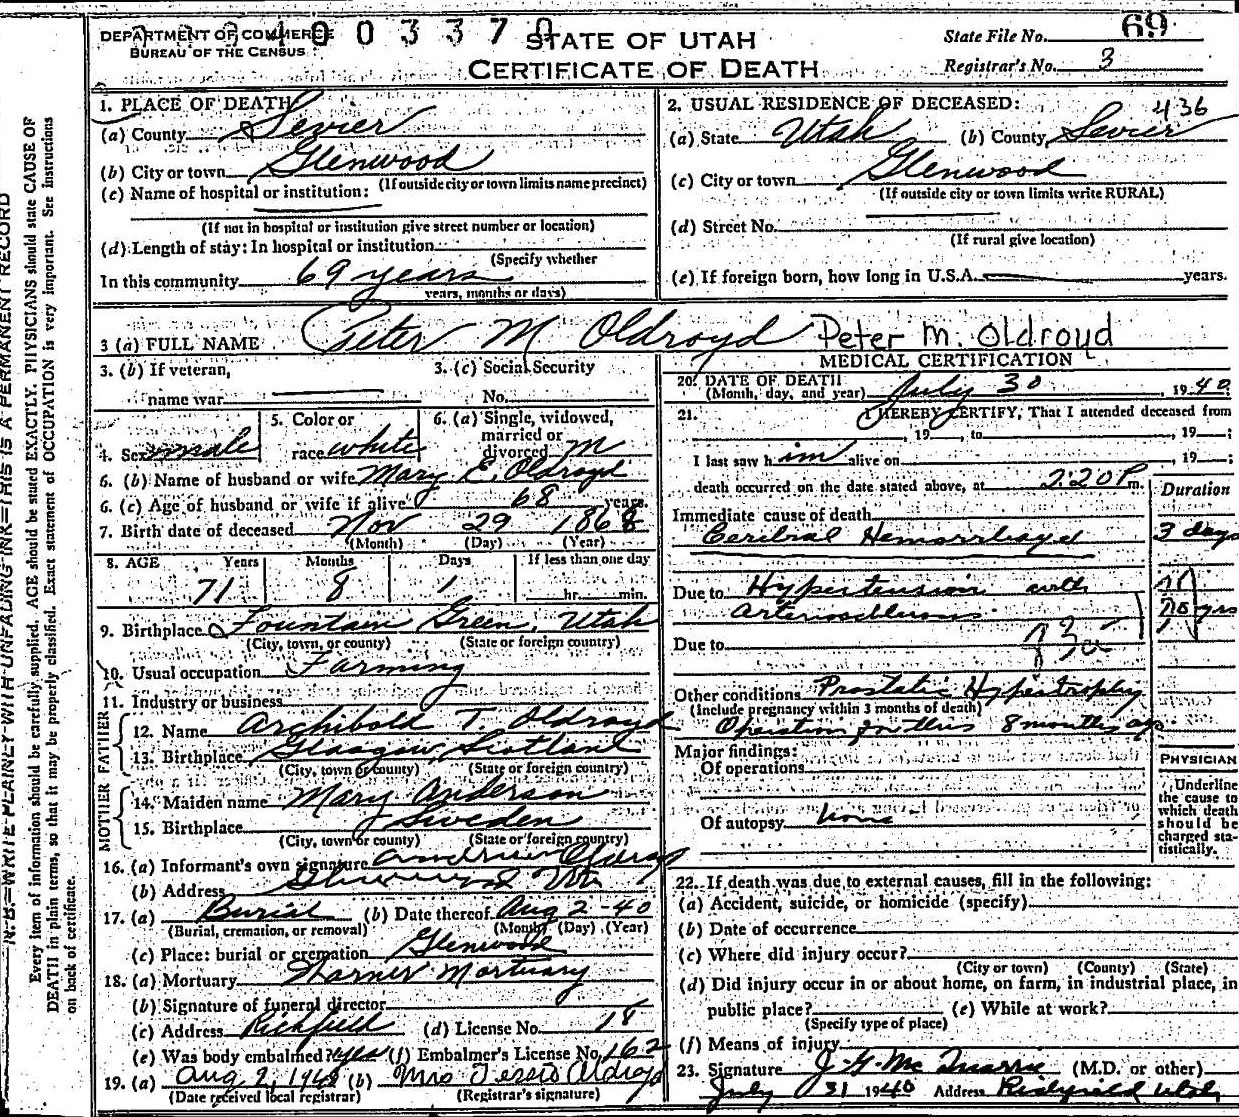 DEPARTMENT OF COMMERCE
BUREAU OF THE CENSUS
0 0 3 3 7 0
STATE OF UTAH
CERTIFICATE OF DEATH
State File No. 69
Registrar's No. 3
1. PLACE OF DEATH
(a) County Sevier
(b) City or town Glenwood
(If outside city or town limits name precinct)
(c) Name of hospital or institution:
(If not in hospital or institution give street number or location)
(d) Length of stay: In hospital or institution
(Specify whether
In this community 69 years
years, months or days)
2. USUAL RESIDENCE OF DECEASED: 436
(a) State Utah (b) County Sevier
(c) City or town Glenwood
(If outside city or town limits write RURAL)
(d) Street No.
(If rural give location)
(e) If foreign born, how long in U.S.A. years.
3 (a) FULL NAME Peter M Oldroyd Peter M. Oldroyd
3. (b) If veteran,
name war
3. (c) Social Security
No.
4. Sex male
5. Color or
race white
6. (a) Single, widowed,
married or
divorced M
6. (b) Name of husband or wife Mary E. Oldroyd
6. (c) Age of husband or wife if alive 68 years.
7. Birth date of deceased Nov 29 1868
(Month) (Day) (Year)
8. AGE Years Months Days If less than one day
71 8 1 hr. min.
9. Birthplace Fountain Green, Utah
(City, town, or county) (State or foreign country)
10. Usual occupation Farming
11. Industry or business
FATHER
12. Name Archibold T. Oldroyd
13. Birthplace Glasgow, Scotland
(City, town or county) (State or foreign country)
MOTHER
14. Maiden name Mary Anderson
15. Birthplace Sweden
(City, town or county) (State or foreign country)
16. (a) Informant's own signature Andrew Oldroyd
(b) Address Glenwood Utah
17. (a) Burial (b) Date thereof Aug 2-40
(Burial, cremation, or removal) (Month) (Day) (Year)
(c) Place: burial or cremation Glenwood
18. (a) Mortuary Mortuary
(b) Signature of funeral director
(c) Address Richfield (d) License No. 18
(e) Was body embalmed? yes (f) Embalmer's License No. 162
19. (a) Aug 2, 1940 (b) Mrs Oldroyd
(Date received local registrar) (Registrar's signature)
MEDICAL CERTIFICATION
20. DATE OF DEATH
(Month, day, and year) July 30, 1940
21. I HEREBY CERTIFY, That I attended deceased from
, 19 , to , 19 ;
I last saw h im alive on , 19 ;
death occurred on the date stated above, at 2:20 P m.
Duration
Immediate cause of death
Cerebral Hemorrhage 3 days
Due to Hypertension with
Arteriosclerosis 10 yrs
Due to 83a
Other conditions Prostatic Hypertrophy
(Include pregnancy within 3 months of death)
Operation for this 8 months ago
Major findings:
Of operations
Of autopsy none
PHYSICIAN
Underline
the cause to
which death
should be
charged sta-
tistically.
22. If death was due to external causes, fill in the following:
(a) Accident, suicide, or homicide (specify)
(b) Date of occurrence
(c) Where did injury occur?
(City or town) (County) (State)
(d) Did injury occur in or about home, on farm, in industrial place, in
public place? (e) While at work?
(Specify type of place)
(f) Means of injury
23. Signature J. G. McQuarrie (M.D. or other)
July 31 1940 Address Richfield Utah
N. B.—WRITE PLAINLY WITH UNFADING INK—THIS IS A PERMANENT RECORD
Every item of information should be carefully supplied. AGE should be stated EXACTLY. PHYSICIANS should state CAUSE OF
DEATH in plain terms, so that it may be properly classified. Exact statement of OCCUPATION is very important. See Instructions
on back of certificate.